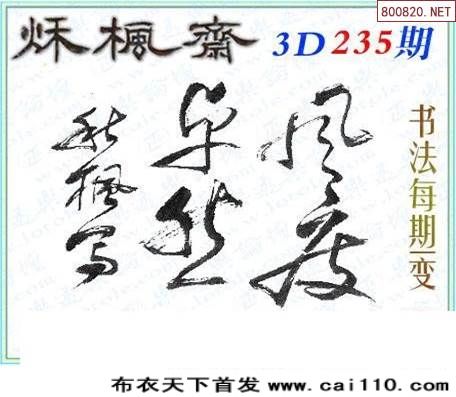 800820.NET
秌楓齋 3D235期
风度
卓然
秋楓写
书法每期一变
布衣天下首发 www.cai110.com